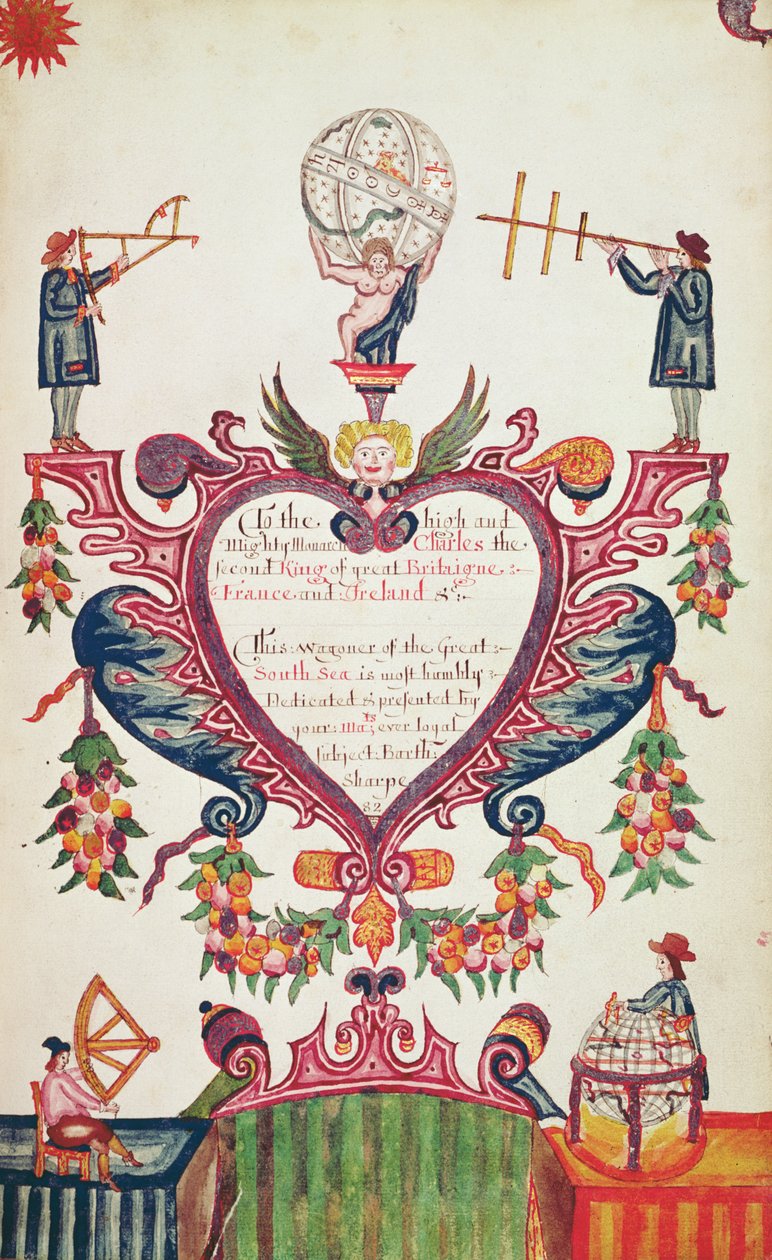 To the high and
Mighty Monarch Charles the
second King of great Britaigne :-
France and Ireland &c:
This: wagoner of the Great :-
South Sea is most humbly :
Dedicated & presented by
your: Ma:ts ever loyal
subject: Barth:
Sharpe
82